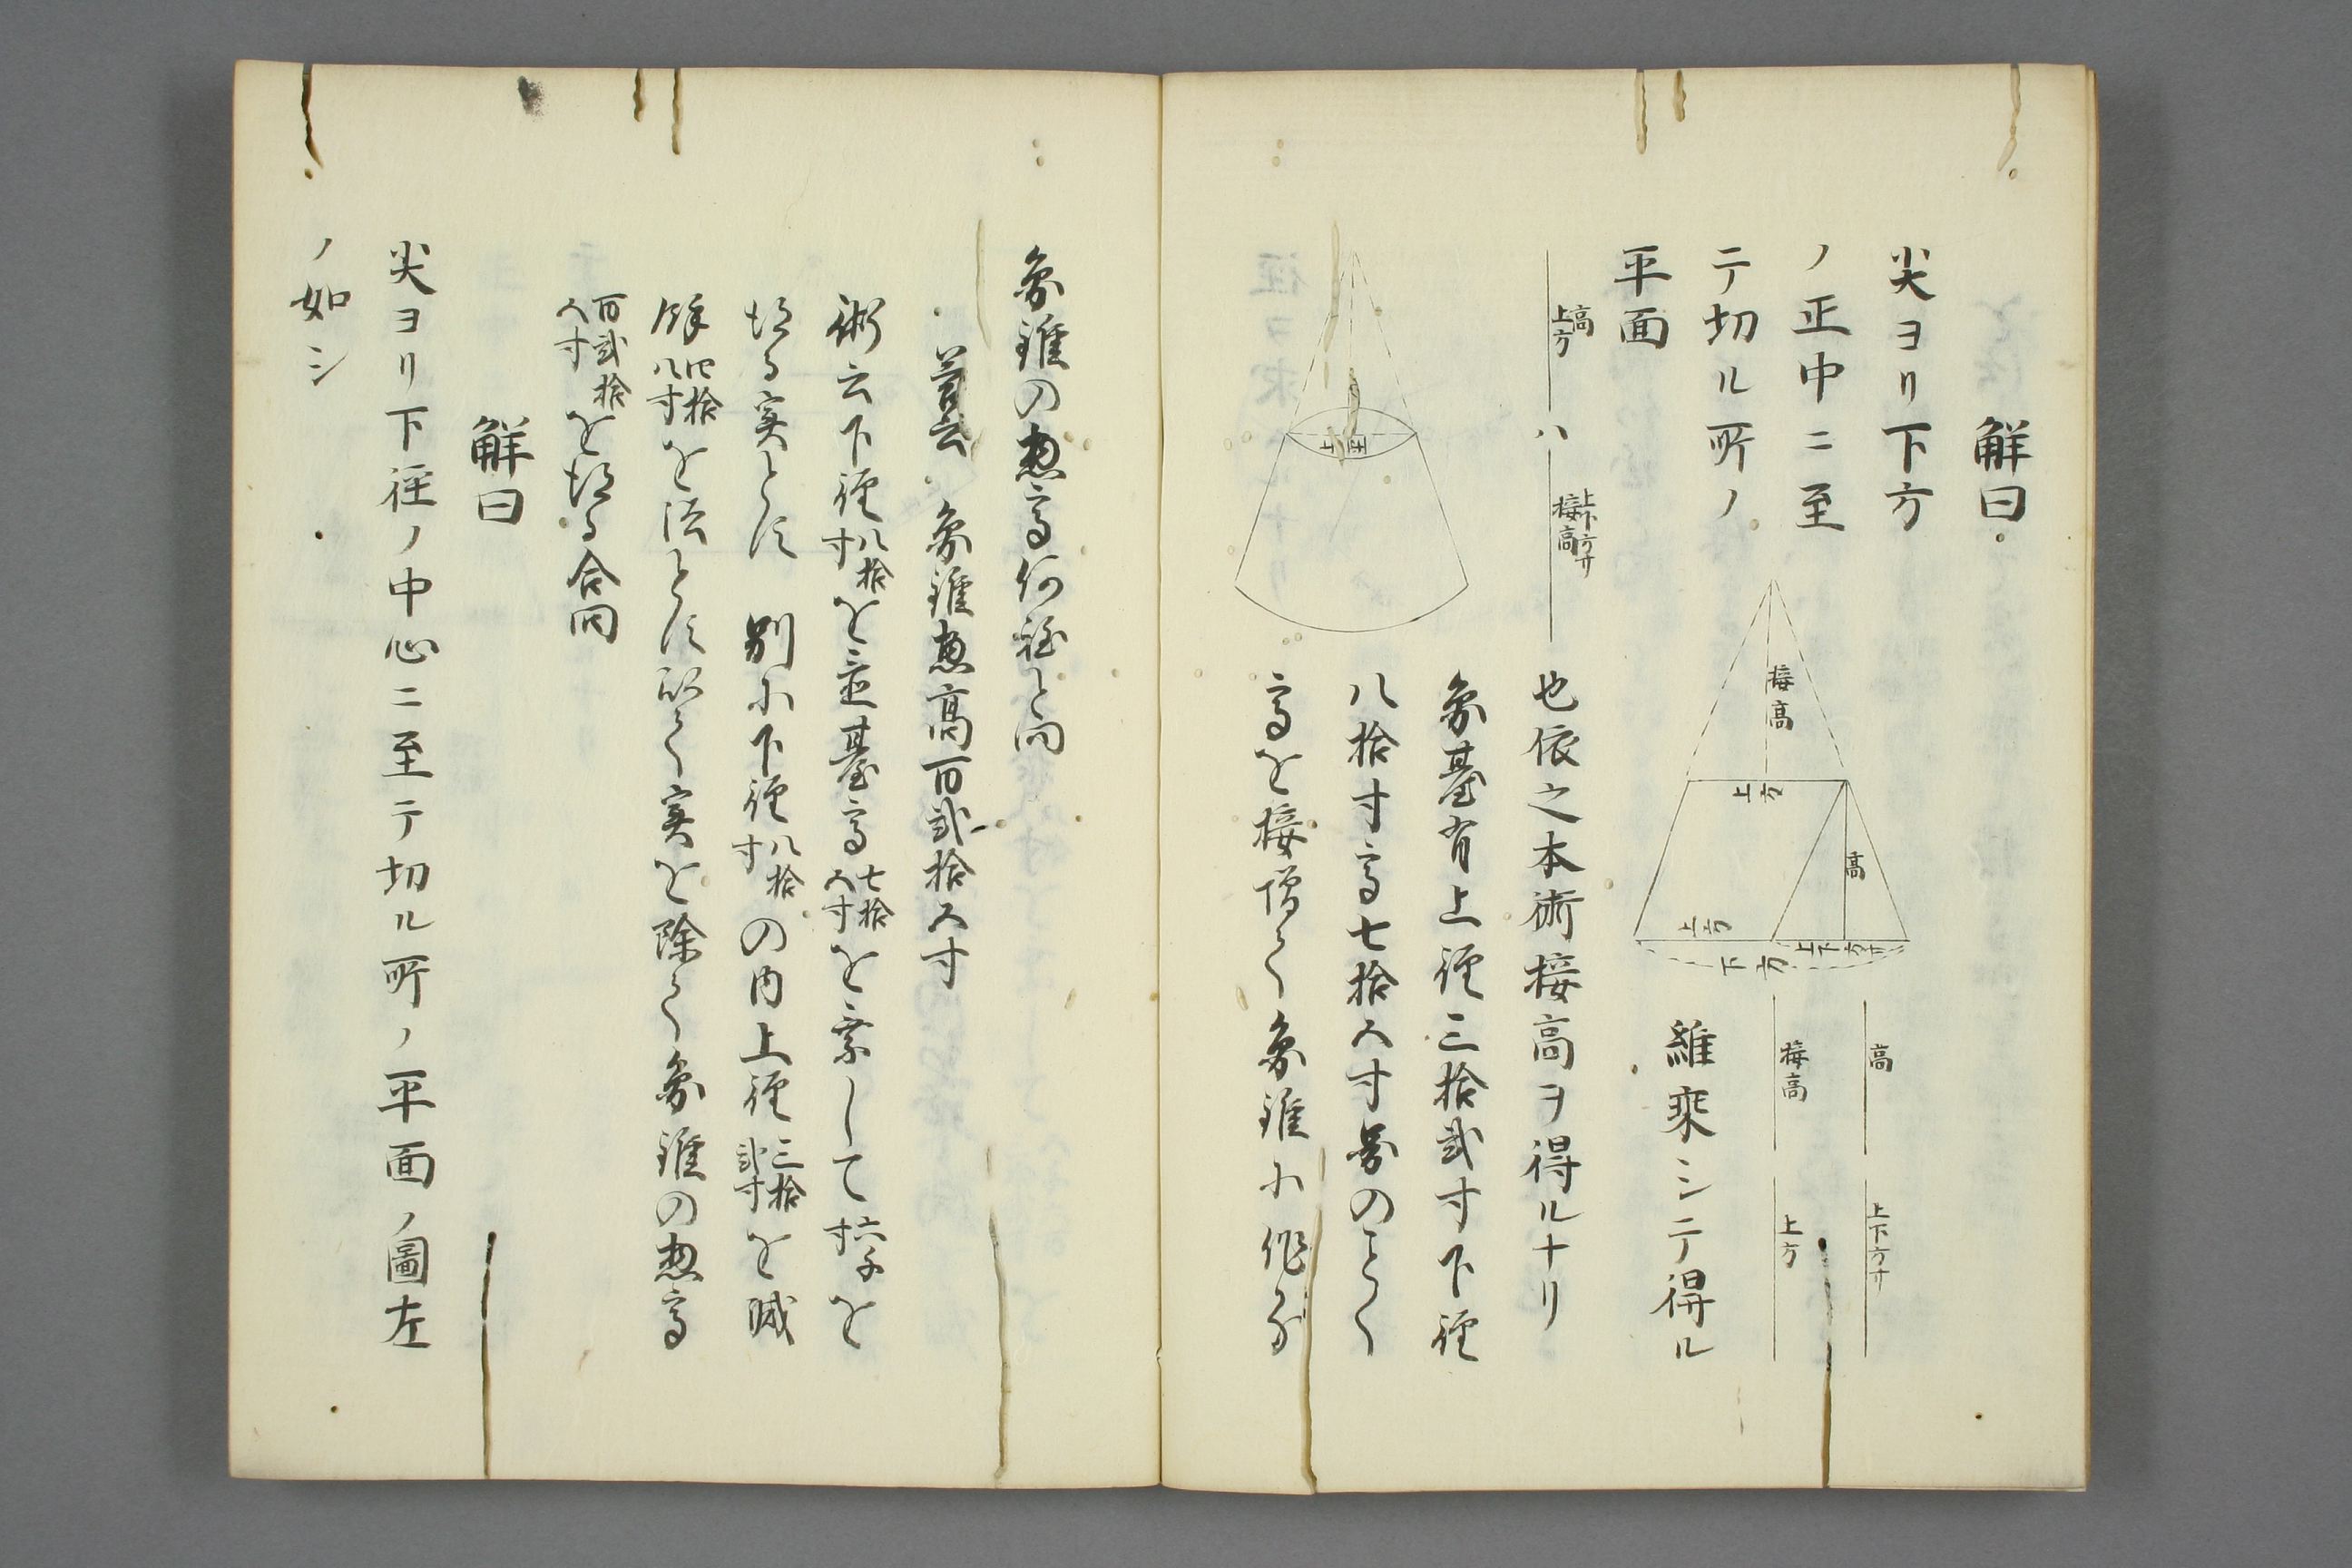 解曰
尖ヨリ下方
ノ正中ニ至
テ切ル所ノ
平面
接高
上方
高
上方
上下方サ
下方
高 上下方サ
接高 上方
維乗シテ得ル
高上方 ハ 上下方サ接高
也依之本術接高ヲ得ルナリ
上径
円臺有上徑三拾弐寸下徑
八拾寸高七拾五寸図のことく
高を接増て円錐に作れば
円錐の惣高何程と問
答云 円錐惣高百弐拾五寸
術云下徑八拾寸を置臺高七拾五寸を乗して六千寸を
得る実とす 別に下徑八拾寸の内上徑三拾弐寸を減
餘四拾八寸を法とす以て実を除て円錐の惣高
百弐拾五寸を得る合問
解曰
尖ヨリ下径ノ中心ニ至テ切ル所ノ平面ノ圖左
ノ如シ